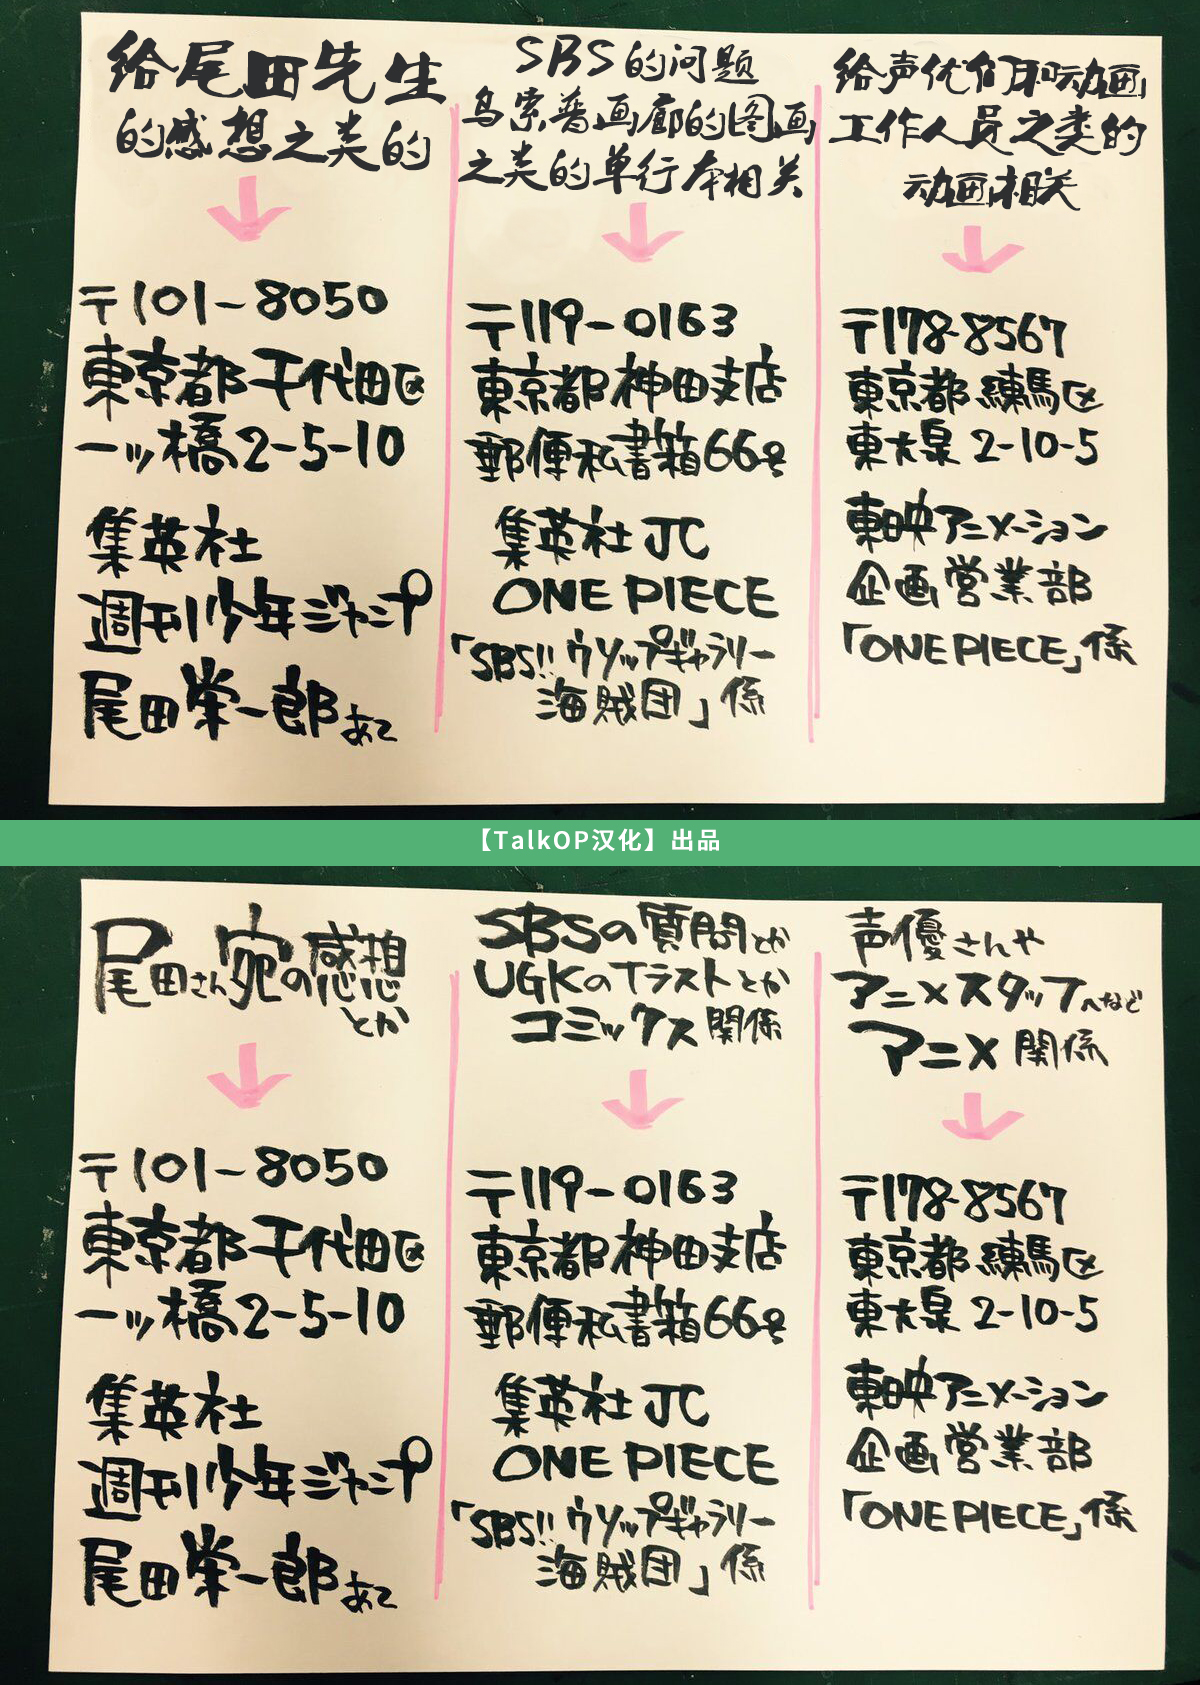 给尾田先生
的感想之类的
〒101-8050
東京都千代田区
一ッ橋2-5-10
集英社
週刊少年ジャンプ
尾田栄一郎あて
SBS的问题
乌索普画廊的图画
之类的单行本相关
〒119-0163
東京都神田支店
郵便私書箱66号
集英社JC
ONE PIECE
「SBS!!ウソップギャラリー
海賊団」係
给声优们和动画
工作人员之类的
动画相关
〒178-8567
東京都練馬区
東大泉2-10-5
東映アニメーション
企画営業部
「ONE PIECE」係
【TalkOP汉化】出品
尾田さん宛の感想
とか
〒101-8050
東京都千代田区
一ッ橋2-5-10
集英社
週刊少年ジャンプ
尾田栄一郎あて
SBSの質問とか
UGKのイラストとか
コミックス関係
〒119-0163
東京都神田支店
郵便私書箱66号
集英社JC
ONE PIECE
「SBS!!ウソップギャラリー
海賊団」係
声優さんや
アニメスタッフへなど
アニメ関係
〒178-8567
東京都練馬区
東大泉2-10-5
東映アニメーション
企画営業部
「ONE PIECE」係